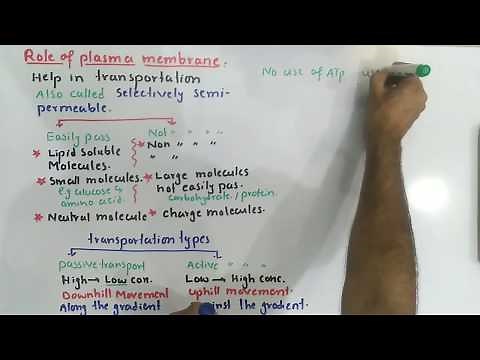 Role of plasma membrane:
Help in transportation
Also called selectively semi-
permeable.
No use of ATP
Easily pass
Not " " " "
* Lipid Soluble
Molecules.
* Non " " "
" "
* Small molecules.
e.g glucose
amino acid.
* Large molecules
not easily pas.
carbohydrate/protein.
* Neutral molecule
* Charge molecules.
transportation types
passive transport
Active " " "
High → Low con.
Low → High conc.
Downhill Movement
Uphill movement.
Along the gradient
the gradient.